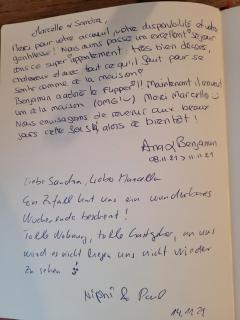 Marcello & Sandra,
Merci pour votre accueil, votre disponibilité et votre
gentillesse! Nous avons passé un excellent séjour
dans ce super appartement, très bien décoré,
chaleureux et avec tout ce qu'il faut pour se
sentir comme à la maison!
Benjamin a adoré le flipper!! Maintenant il en veut
un à la maison (OMG!) Merci Marcello
Nous envisageons de revenir aux beaux
jours cette alors à bientôt!
Ana & Benjamin
08.11.21 > 11.11.21
Liebe Sandra, Liebo Marcello
Ein Zufall hat uns ein wunderbares
Wochenende beschert!
Tolle Wohnung, tolle Gastgeber, an uns
wird es nicht liegen uns nicht wieder
zu sehen
& Paul
14.11.21